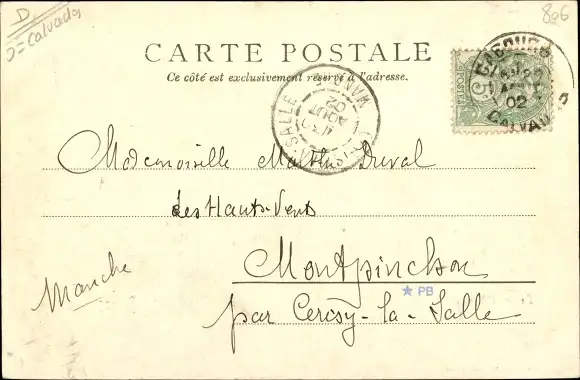 D
D=Calvados
806
CARTE POSTALE
Ce côté est exclusivement réservé à l'adresse.
CABOURG
02
CALVADOS
5
LA-SALLE
MANCHE
AOUT
02
Mademoiselle Duval
Les Hauts-Vents
Montpinchon
Manche
par Cerisy-la-Salle
PB